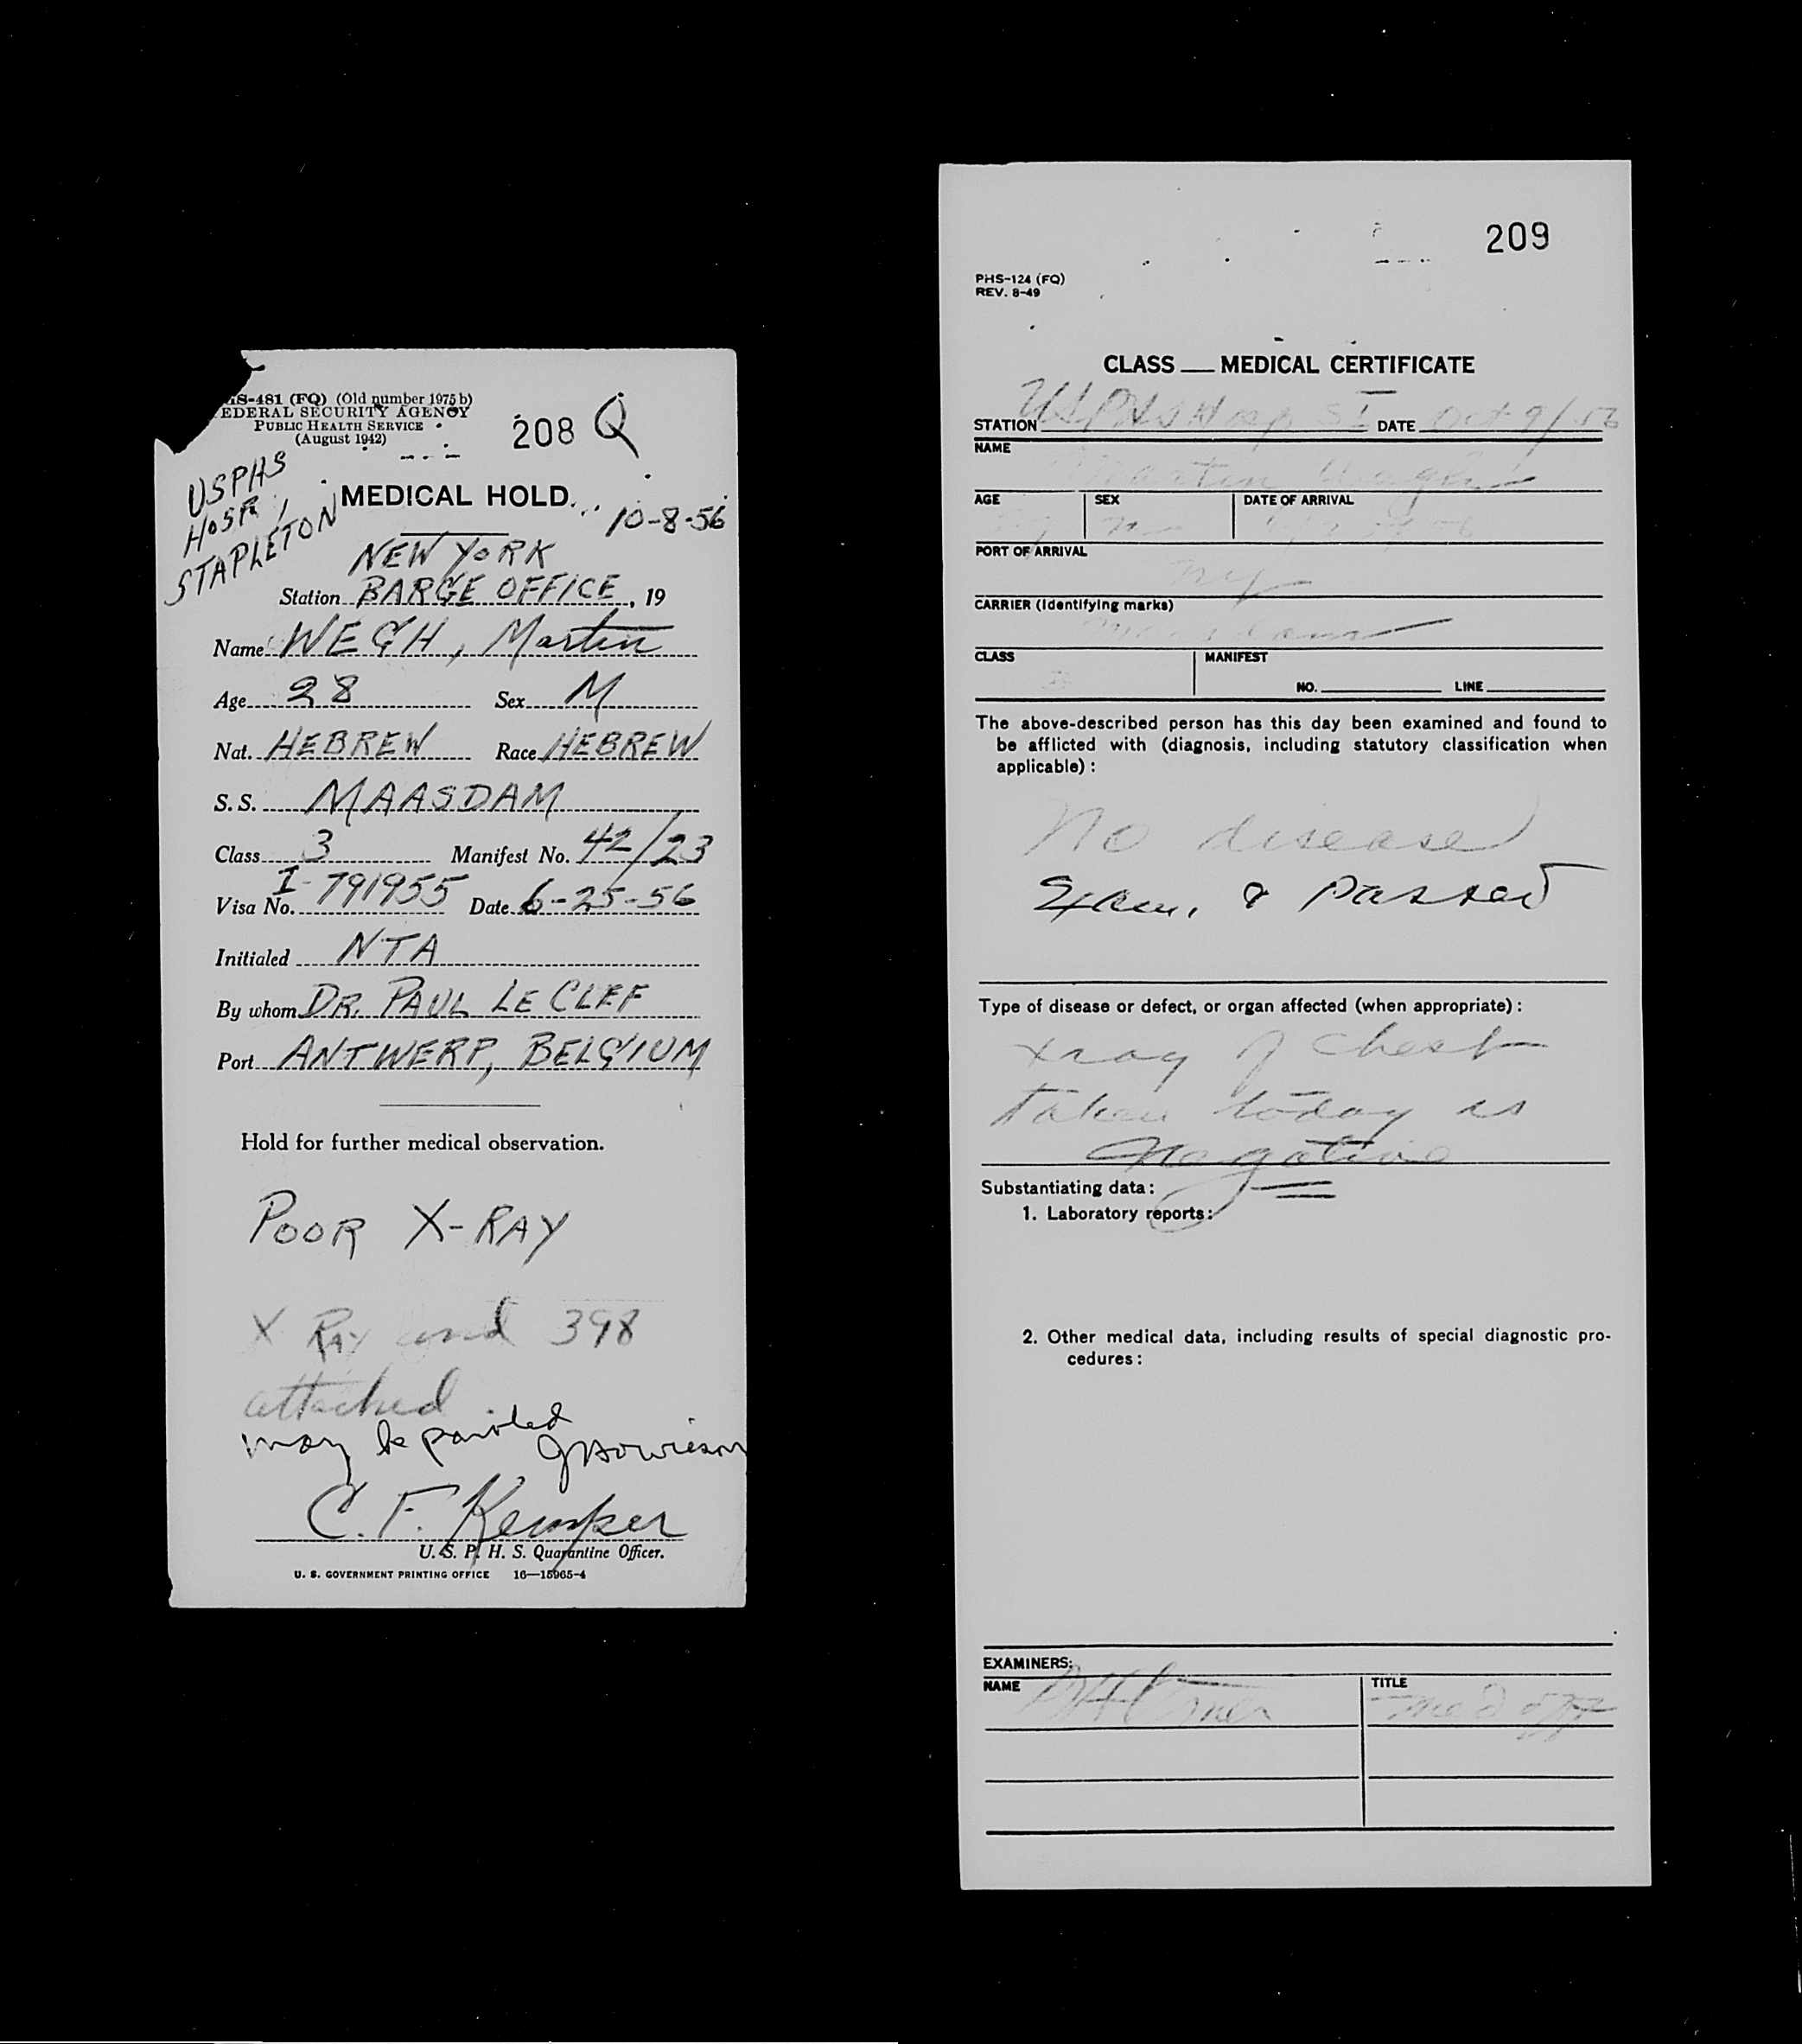 -481 (FQ) (Old number 1975b)
FEDERAL SECURITY AGENCY
PUBLIC HEALTH SERVICE
(August 1942)
208 Q
USPHS
HOSP,
STAPLETON
MEDICAL HOLD
10-8-56
NEW YORK
Station BARGE OFFICE, 19
Name WEGH, Martin
Age 28 Sex M
Nat. HEBREW Race HEBREW
S. S. MAASDAM
Class 3 Manifest No. 42/23
Visa No. I-791955 Date 6-25-56
Initialed NTA
By whom DR. PAUL LE CLEF
Port ANTWERP, BELGIUM
Hold for further medical observation.
POOR X-RAY
X RAY and 398
attached
may be paroled
C. F. Kemper
U. S. P. H. S. Quarantine Officer.
U. S. GOVERNMENT PRINTING OFFICE 16—15965-4
209
PHS-124 (FQ)
REV. 8-49
CLASS MEDICAL CERTIFICATE
STATION USPHS Hosp SI DATE Oct 9/56
NAME Martin
AGE SEX M DATE OF ARRIVAL
PORT OF ARRIVAL NY
CARRIER (Identifying marks) Maasdam
CLASS MANIFEST
NO. LINE
The above-described person has this day been examined and found to
be afflicted with (diagnosis, including statutory classification when
applicable):
No disease
Exam. & Passed
Type of disease or defect, or organ affected (when appropriate):
xray of chest
taken today is
negative
Substantiating data:
1. Laboratory reports:
2. Other medical data, including results of special diagnostic pro-
cedures:
EXAMINERS:
NAME TITLE
med off